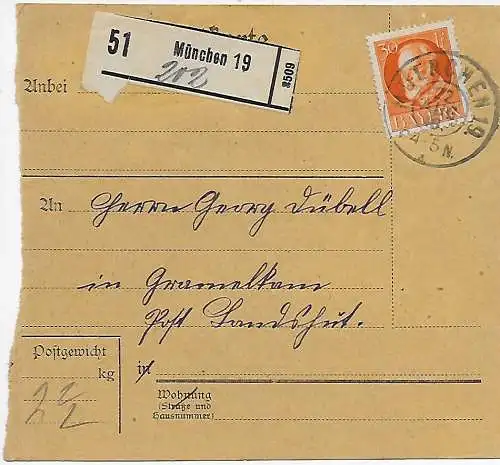 51 München 19
202
8509
Anbei
30
MÜNCHEN 19.
4-5 N.
BAYERN
An Herrn Georg Dübell
in Gramelkam
Post Landshut.
Postgewicht
kg
in
Wohnung
(Straße und
Hausnummer)